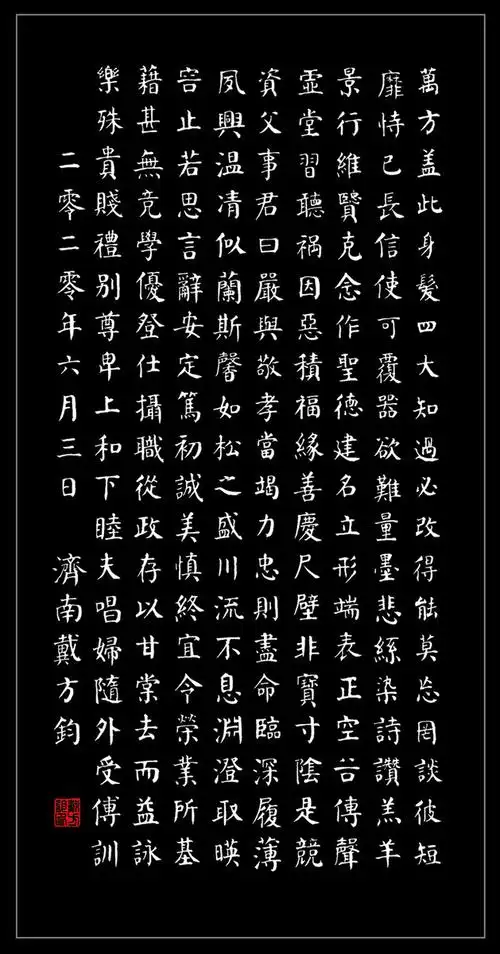 萬方盖此身髮四大知過必改得能莫忘罔談彼短
靡恃己長信使可覆器欲難量墨悲絲染詩讚羔羊
景行維賢克念作聖德建名立形端表正空谷傳聲
虛堂習聽祸因惡積福緣善慶尺璧非寶寸陰是競
資父事君曰嚴與敬孝當竭力忠則盡命臨深履薄
夙興温凊似蘭斯馨如松之盛川流不息淵澄取暎
容止若思言辭安定篤初誠美慎終宜令榮業所基
藉甚無竟學優登仕攝職從政存以甘棠去而益詠
樂殊貴賤禮別尊卑上和下睦夫唱婦隨外受傅訓
二零二零年六月三日 濟南戴方鈞